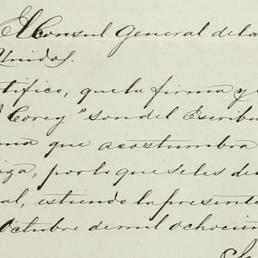 El Consul General de la
Unidos.
tifico, que la firma y
Corey" son del Escriba
ma que acostumbra
iga, por lo que se les de
al, estiendo la presente
Octubre de mil ochocien